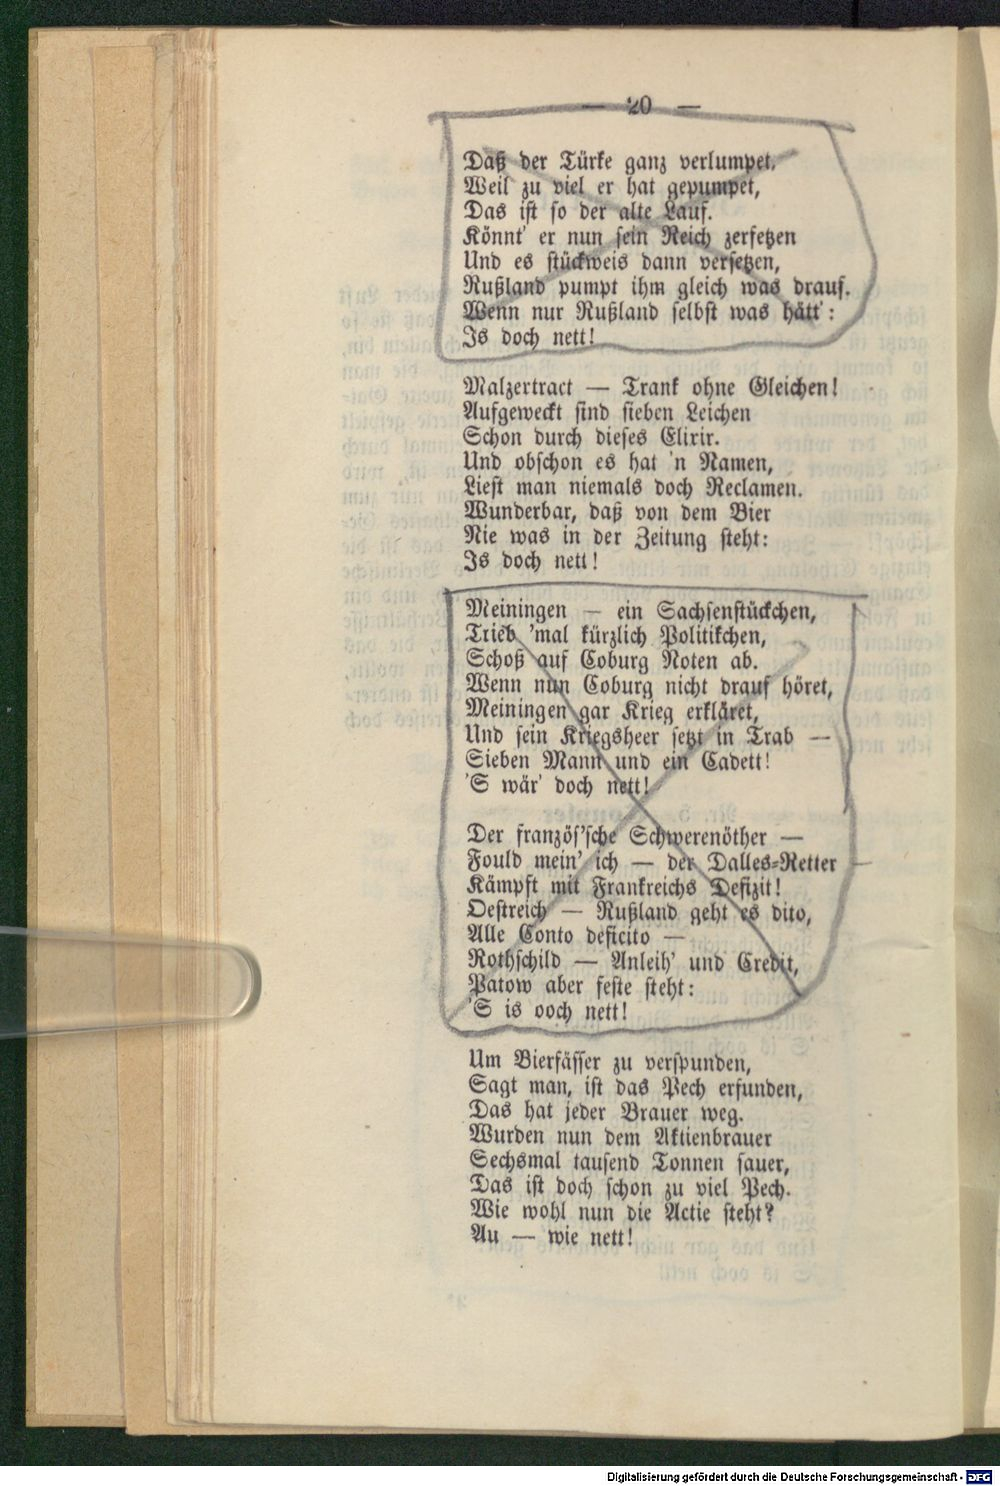 — 20 —
Daß der Türke ganz verlumpet,
Weil zu viel er hat gepumpet,
Das ist so der alte Lauf.
Könnt' er nun sein Reich zerfetzen
Und es stückweis dann versetzen,
Rußland pumpt ihm gleich was drauf.
Wenn nur Rußland selbst was hätt':
Js doch nett!
Malzertract — Trank ohne Gleichen!
Aufgeweckt sind sieben Leichen
Schon durch dieses Elixir.
Und obschon es hat 'n Namen,
Liest man niemals doch Reclamen.
Wunderbar, daß von dem Bier
Nie was in der Zeitung steht:
Js doch nett!
Meiningen — ein Sachsenstückchen,
Trieb 'mal kürzlich Politikchen,
Schoß auf Coburg Noten ab.
Wenn nun Coburg nicht drauf höret,
Meiningen gar Krieg erkläret,
Und sein Kriegsheer setzt in Trab —
Sieben Mann und ein Cadett!
'S wär' doch nett!
Der französ'sche Schwerenöther —
Fould mein' ich — der Dalles-Retter —
Kämpft mit Frankreichs Defizit!
Oestreich — Rußland geht es dito,
Alle Conto deficito —
Rothschild — Anleih' und Credit,
Patow aber feste steht:
'S is ooch nett!
Um Bierfässer zu verspunden,
Sagt man, ist das Pech erfunden,
Das hat jeder Brauer weg.
Wurden nun dem Aktienbrauer
Sechsmal tausend Tonnen sauer,
Das ist doch schon zu viel Pech.
Wie wohl nun die Actie steht?
Au — wie nett!
Digitalisierung gefördert durch die Deutsche Forschungsgemeinschaft - DFG